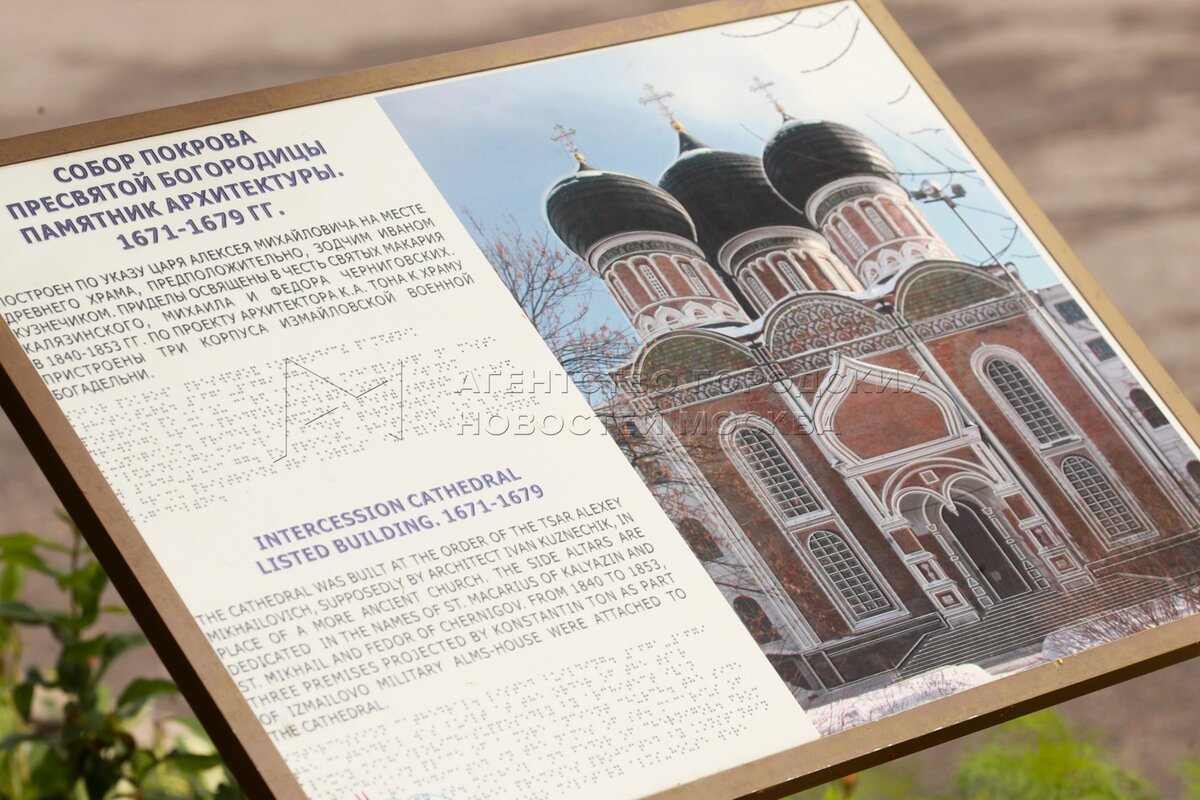 СОБОР ПОКРОВА
ПРЕСВЯТОЙ БОГОРОДИЦЫ
ПАМЯТНИК АРХИТЕКТУРЫ.
1671-1679 ГГ.
ПОСТРОЕН ПО УКАЗУ ЦАРЯ АЛЕКСЕЯ МИХАЙЛОВИЧА НА МЕСТЕ
ДРЕВНЕГО ХРАМА, ПРЕДПОЛОЖИТЕЛЬНО, ЗОДЧИМ ИВАНОМ
КУЗНЕЧИКОМ. ПРИДЕЛЫ ОСВЯЩЕНЫ В ЧЕСТЬ СВЯТЫХ МАКАРИЯ
КАЛЯЗИНСКОГО, МИХАИЛА И ФЕДОРА ЧЕРНИГОВСКИХ.
В 1840-1853 ГГ. ПО ПРОЕКТУ АРХИТЕКТОРА К.А. ТОНА К ХРАМУ
ПРИСТРОЕНЫ ТРИ КОРПУСА ИЗМАЙЛОВСКОЙ ВОЕННОЙ
БОГАДЕЛЬНИ.
АГЕНТСТВО ГОРОДСКИХ
НОВОСТЕЙ МОСКВА
INTERCESSION CATHEDRAL
LISTED BUILDING. 1671-1679
THE CATHEDRAL WAS BUILT AT THE ORDER OF THE TSAR ALEXEY
MIKHAILOVICH, SUPPOSEDLY BY ARCHITECT IVAN KUZNECHIK, IN
PLACE OF A MORE ANCIENT CHURCH. THE SIDE ALTARS ARE
DEDICATED IN THE NAMES OF ST. MACARIUS OF KALYAZIN AND
ST. MIKHAIL AND FEDOR OF CHERNIGOV. FROM 1840 TO 1853,
THREE PREMISES PROJECTED BY KONSTANTIN TON AS PART
OF IZMAILOVO MILITARY ALMS-HOUSE WERE ATTACHED TO
THE CATHEDRAL.